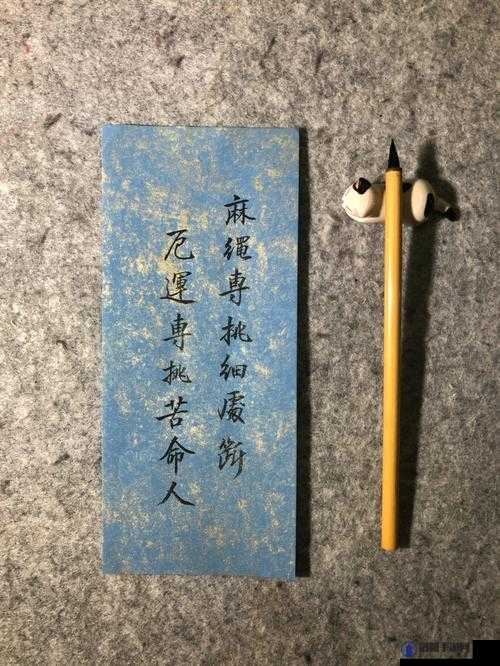 麻繩專挑細處斷
厄運專挑苦命人